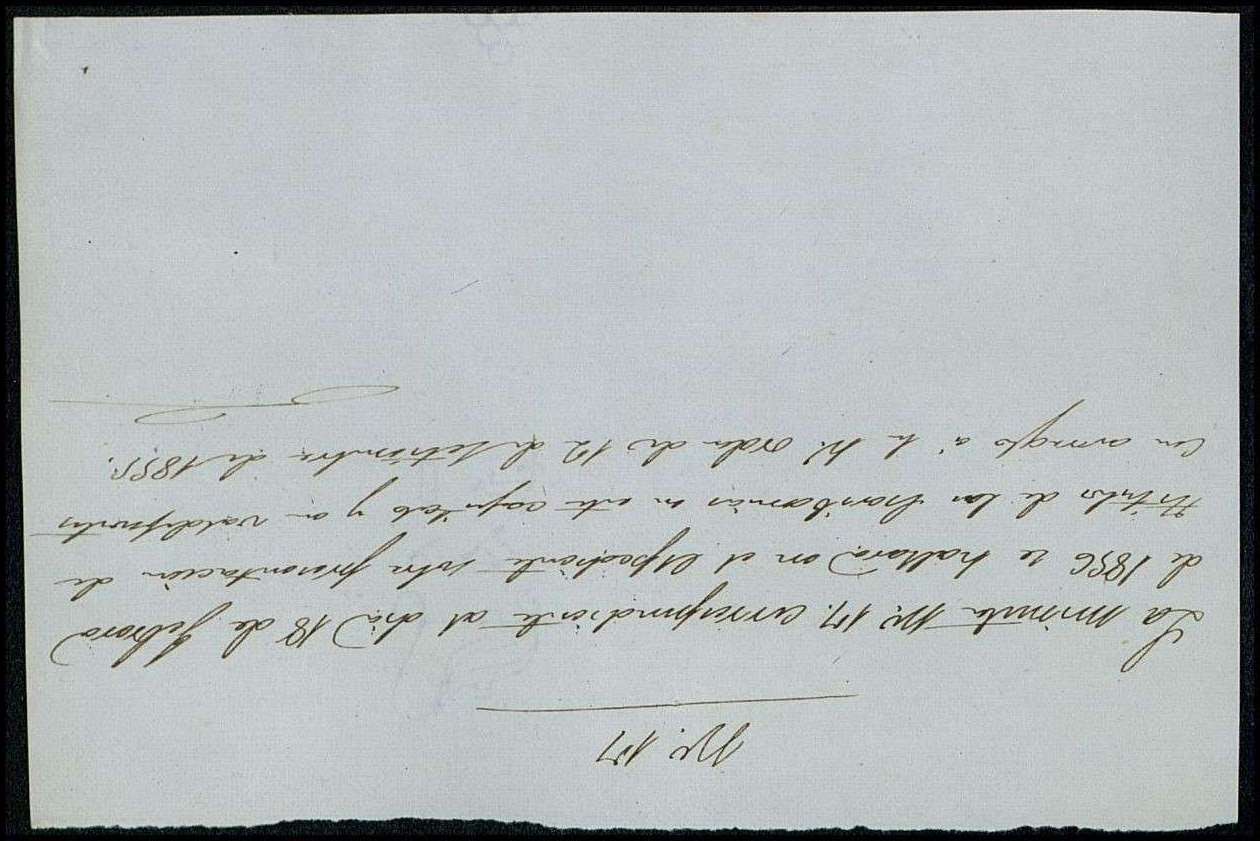 Nº. 17
La minuta Nº. 17. correspondiente al dia 18 de Febrero
de 1856 se hallará en el Espediente sobre presentacion de
titulos de las en esta capital y en
con arreglo á la Rl. orden de 12 de Setiembre de 1855.